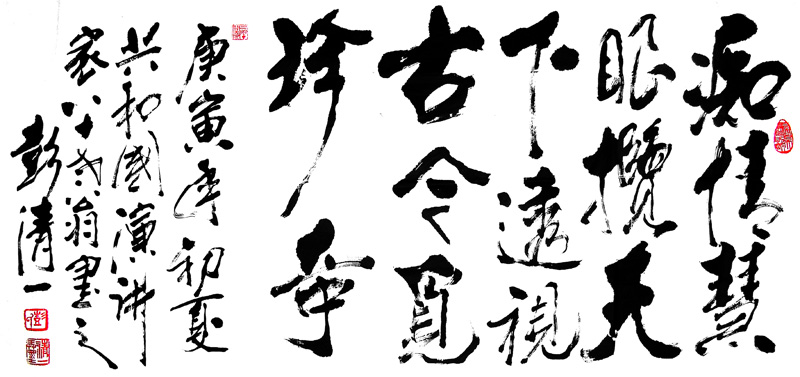 痴情慧
眼攬天
下透視
古今覓
珍奇
庚寅年初夏
共和國演讲
家八十老翁墨之
彭清一